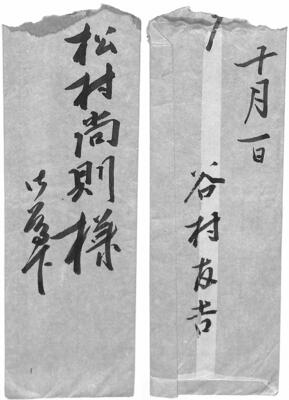 松村尚則様
十月一日
谷村友吉